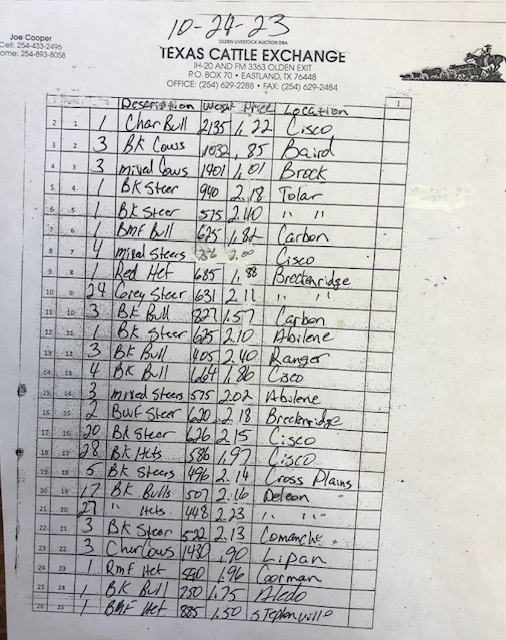 10-24-23
Joe Cooper
Cell: 254-433-2496
ome: 254-893-8058
OLDEN LIVESTOCK AUCTION DBA
TEXAS CATTLE EXCHANGE
IH-20 AND FM 3363 OLDEN EXIT
P.O. BOX 70 • EASTLAND, TX 76448
OFFICE: (254) 629-2288 • FAX: (254) 629-2484
1 Description Weight Price Location 1
2 1 1 Char Bull 2135 1.22 Cisco
3 2 3 BK Cows 1032 .85 Baird
4 3 3 mixed Cows 1401 1.01 Brock
5 4 1 BK Steer 940 2.18 Tolar
6 5 1 BK Steer 575 2.40 " "
7 6 1 Bmf Bull 625 1.82 Carbon
8 7 4 mixed Steers 2.00 Cisco
9 8 1 Red Hef 685 1.88 Breckenridge
10 9 24 Grey Steer 631 2.11 " "
11 10 3 BK Bull 827 1.57 Carbon
12 11 1 BK Steer 625 2.10 Abilene
13 12 3 BK Bull 405 2.40 Ranger
14 13 4 BK Bull 664 1.86 Cisco
15 14 3 mixed Steers 575 2.02 Abilene
16 15 2 Bwf Steer 620 2.18 Breckenridge
17 16 20 BK Steer 626 2.15 Cisco
18 17 28 BK Hefs 586 1.97 Cisco
19 18 5 BK Steers 496 2.14 Cross Plains
20 19 17 BK Bulls 507 2.16 Deleon
21 20 27 " Hefs 448 2.23 " "
22 21 3 BK Steer 522 2.13 Comanche
23 22 3 Char Cows 1480 .90 Lipan
24 23 1 Rmf Hef 590 1.96 Gorman
25 24 1 BK Bull 750 1.75 Aledo
26 25 1 Bmf Hef 885 1.50 Stephenville